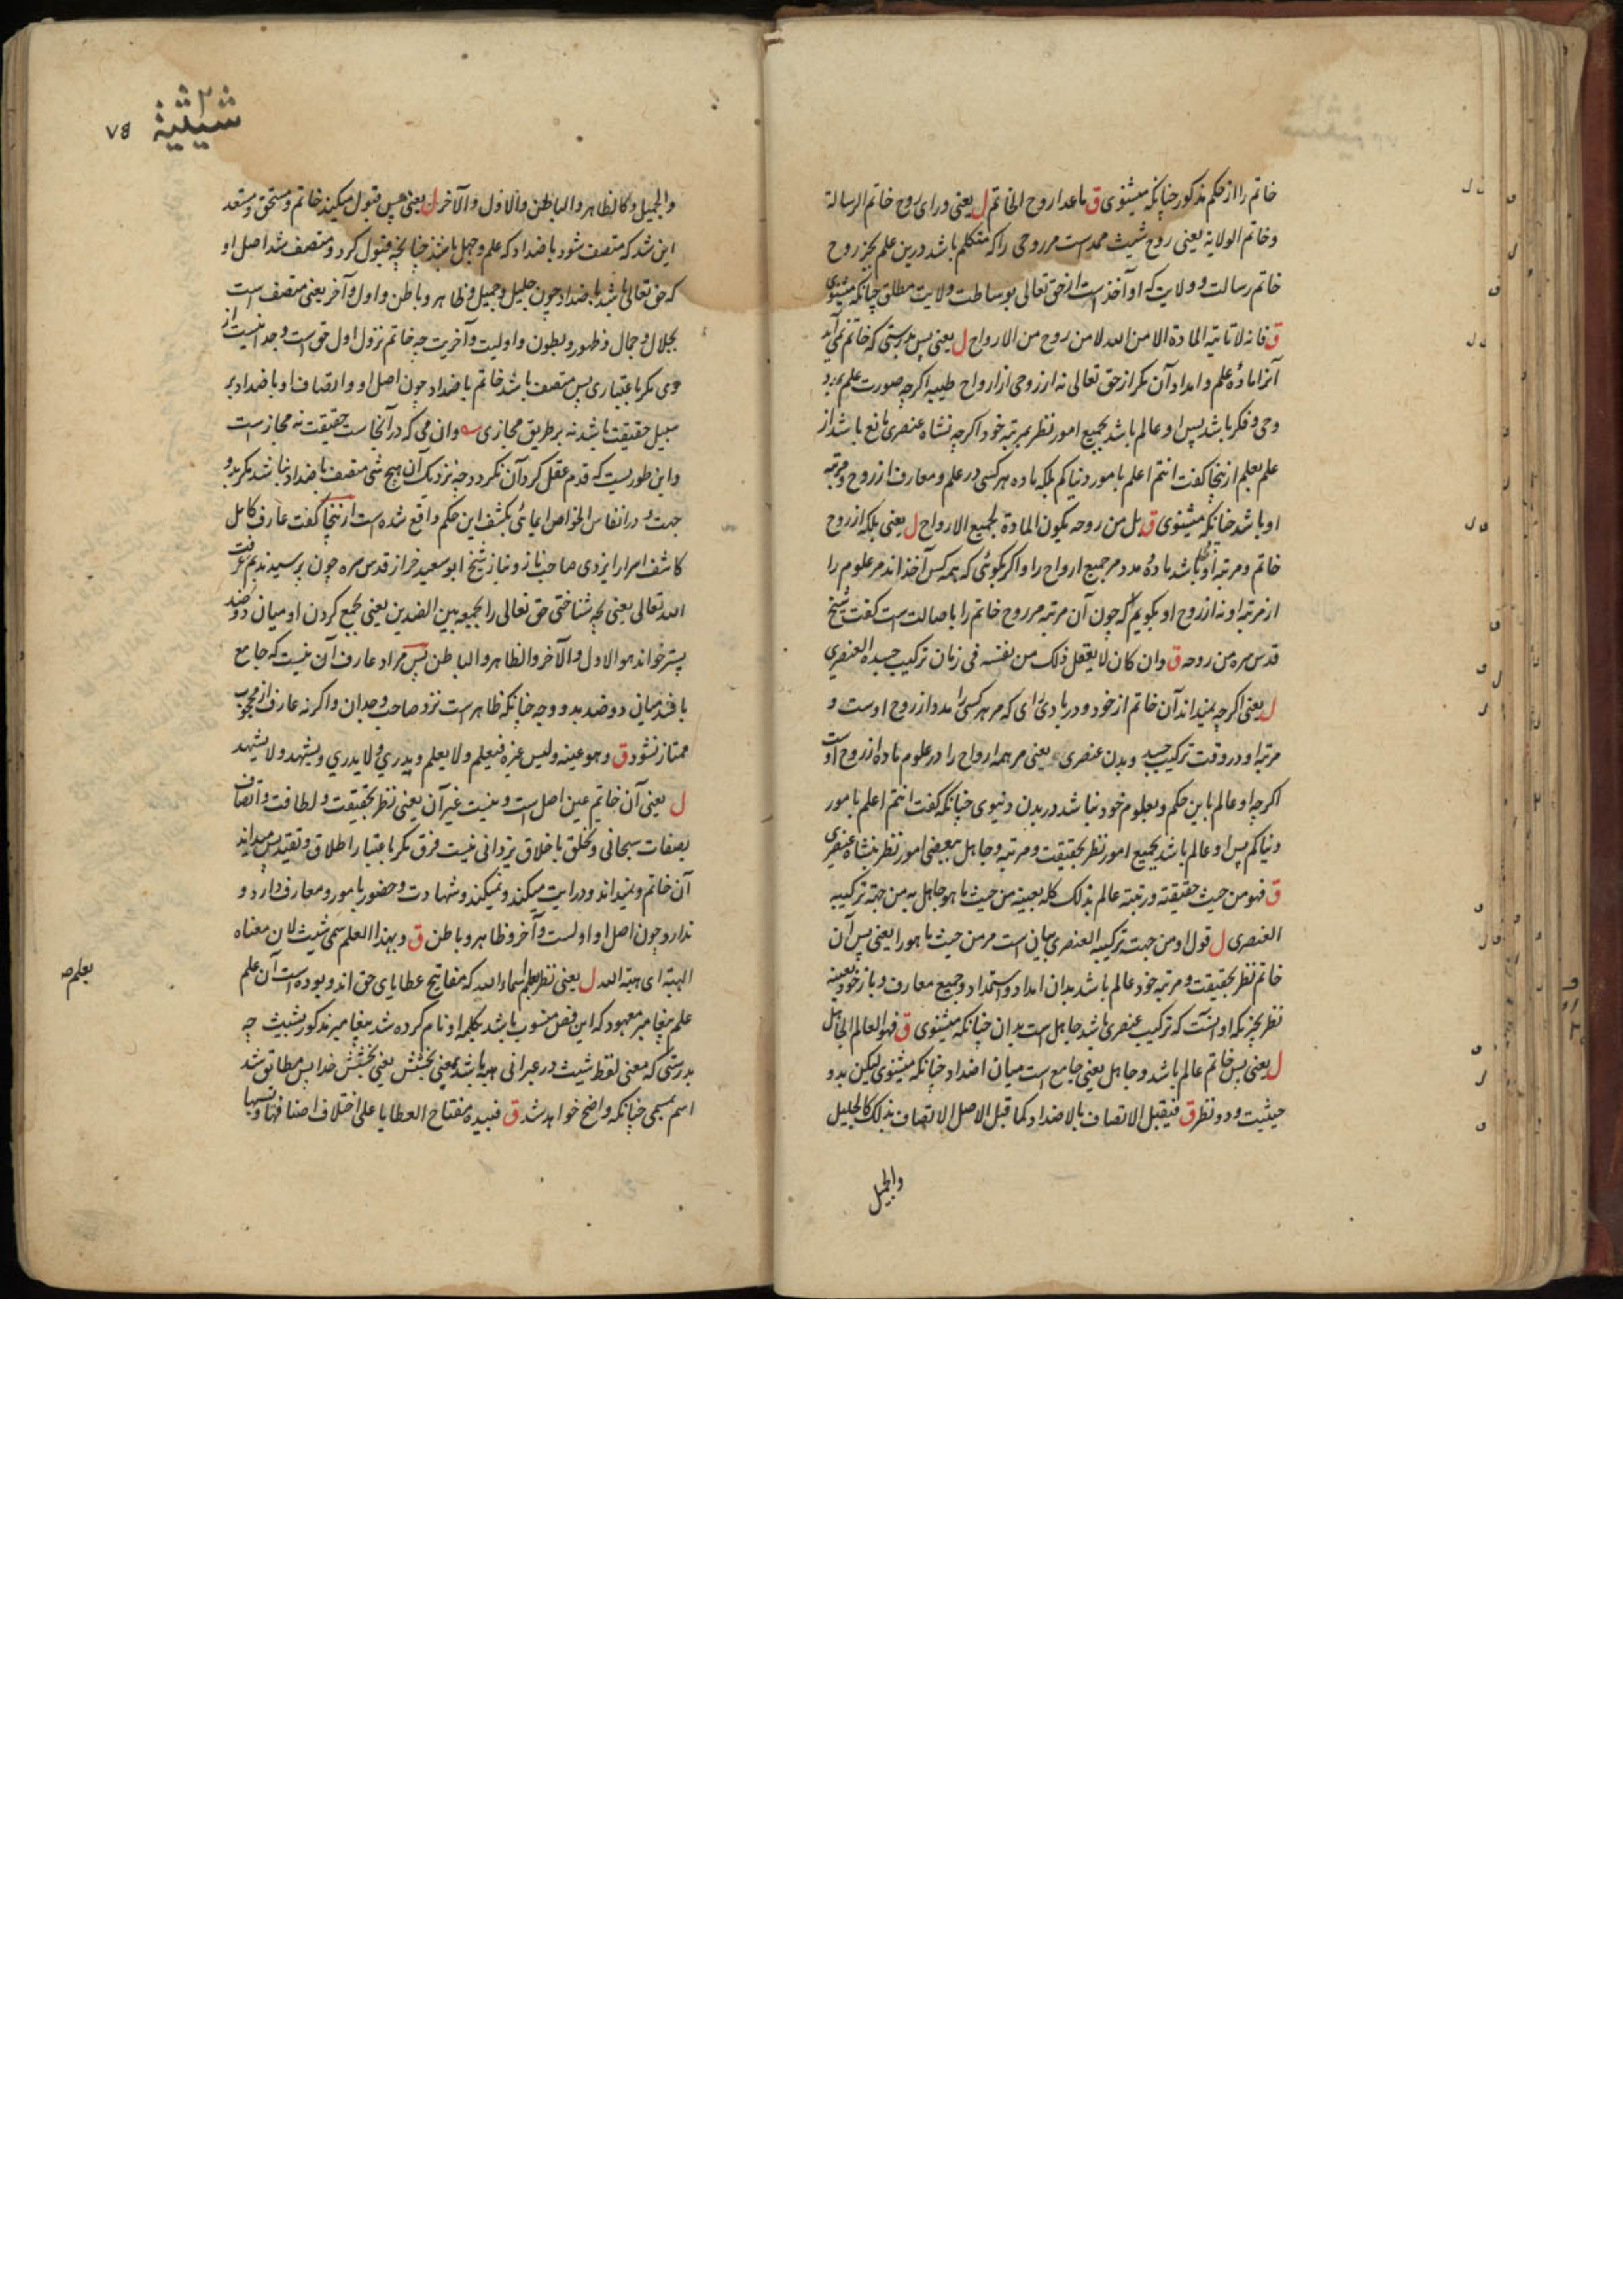 خاتم را از حکم مذکور چنانکه میشنوی ق ماعدا روح الخاتم ل یعنی ورای روح خاتم الرسالة
و خاتم الولایة یعنی روح شیث ممد است مر روحی را که متکلم باشد درین علم بجز روح
خاتم رسالت و ولایت که او آخذ است از حق تعالی بوساطت ولایت مطلق چنانکه میشنوی
ق فانه لا تاتیه المادة الا من الله لا من روح من الارواح ل یعنی پس بدرستی که خاتم نمی آید
آنرا مادهٔ علم و امداد آن مگر از حق تعالی نه از روحی از ارواح طیبه اگرچه صورت علم
وحی و فکر باشد پس او عالم باشد بجمیع امور نظر بمرتبه خود اگرچه نشاه عنصری مانع باشد از
علم بعلم ازینجا گفت انتم اعلم بامور دنیاکم بلکه ماده هر کسی در علم و معارف از روح و مرتبه
او باشد چنانکه میشنوی ق بل من روحه یکون المادة لجمیع الارواح ل یعنی بلکه از روح
خاتم و مرتبه او باشد مادهٔ مدد مر جمیع ارواح را و اگر بگوئی که همه کس آخذ اند مر علوم را
از مرتبه او نه از روح او بگویم که چون آن مرتبه مر روح خاتم را باصالت است گفت شیخ
قدس سره من روحه ق وان کان لا یعقل ذلک من نفسه فی زمان ترکیب جسده العنصری
ل یعنی اگرچه نمیداند آن خاتم از خود و در بادی رای که مر هر کسی را مدد از روح اوست و
مرتبه او در وقت ترکیب جسد و بدن عنصری یعنی مر همه ارواح را در علوم ماده از روح اوست
اگرچه او عالم باین حکم و بعلوم خود نباشد در بدن دنیوی چنانکه گفت انتم اعلم بامور
دنیاکم پس او عالم باشد بجمیع امور نظر بحقیقت و مرتبه و جاهل ببعضی امور نظر بنشاه عنصری
ق فهو من حیث حقیقته و رتبته عالم بذلک کله بعینه من حیث ما هو جاهل به من جهة ترکیبه
العنصری ل قول او من جهت ترکیبه العنصری بیان است مر من حیث ما هو را یعنی پس آن
خاتم نظر بحقیقت و مرتبه خود عالم باشد بدان امداد و استمداد و جمیع معارف و باز خود بعینه
نظر بجزیکه او انست که ترکیب عنصری باشد جاهل است بدان چنانکه میشنوی ق فهو العالم الجاهل
ل یعنی پس خاتم عالم باشد و جاهل یعنی جامع است میان اضداد چنانکه میشنوی لیکن بدو
حیثیت و دو نظر ق فیقبل الاتصاف بالاضداد کما قبل الاصل الاتصاف بذلک کالجلیل
والجمیل
شیثیة
۷۵
والجمیل و کالظاهر والباطن والاول والآخر ل یعنی پس قبول میکند خاتم و مستحق و مستعد
این شد که متصف شود باضداد که علم و جهل باشد چنانچه قبول کرد و متصف شد اصل او
که حق تعالی باشد باضداد چون جلیل و جمیل و ظاهر و باطن و اول و آخر یعنی متصف است
بجلال و جمال و ظهور و بطون و اولیت و آخریت چه خاتم نزول اول حق است و جدا نیست از
وی مگر باعتباری پس متصف باشد خاتم باضداد چون اصل او و اتصاف او باضداد بر
سبیل حقیقت باشد نه بر طریق مجازی وان می که در آنجاست حقیقت نه مجاز است
و این طوریست که قدم عقل گرد آن نگردد چه نزدیک آن هیچ شی متصف باضداد نباشد مگر بدو
جهت و در انفاس الخواص ایمائی بکشف این حکم واقع شده است ازینجا گفت عارف کامل
کاشف اسرار ایزدی صاحب ناز و نیاز شیخ ابو سعید خراز قدس سره چون پرسیدند بم عرفت
الله تعالی یعنی بچه شناختی حق تعالی را بجمعه بین الضدین یعنی بجمع کردن او میان دو ضد
پستر خواند هو الاول والآخر والظاهر والباطن پس مراد عارف آن نیست که جامع
باشد میان دو ضد بدو وجه چنانکه ظاهر است نزد صاحب وجدان و اگر نه عارف از محجوب
ممتاز نشود ق وهو عینه ولیس غیره فیعلم ولا یعلم ویدری ولا یدری ویشهد ولا یشهد
ل یعنی آن خاتم عین اصل است و نیست غیر آن یعنی نظر بحقیقت و لطافت و اتصاف
بصفات سبحانی و تخلق باخلاق یزدانی نیست فرق مگر باعتبار اطلاق و تقید پس میداند
آن خاتم و نمیداند و درایت میکند و نمیکند و شهادت و حضور بامور و معارف دارد و
ندارد چون اصل او اولست و آخر و ظاهر و باطن ق وبهذا العلم سمی شیث لان معناه
الهبة ای هبة الله ل یعنی نظر بعلم اسماء الله که مفاتیح عطایای حق اند و بوده است آن علم
بعلم صح
علم پیغامبر معهود که این فص منسوب باشد بکلمه او نام کرده شد پیغامبر مذکور بشیث چه
بدرستی که معنی لفظ شیث در عبرانی هبه باشد بمعنی بخشش یعنی بخشش خدا پس مطابق شد
اسم بمسمی چنانکه واضح خواهد شد ق فبیده مفتاح العطایا علی اختلاف اصنافها ونسبها